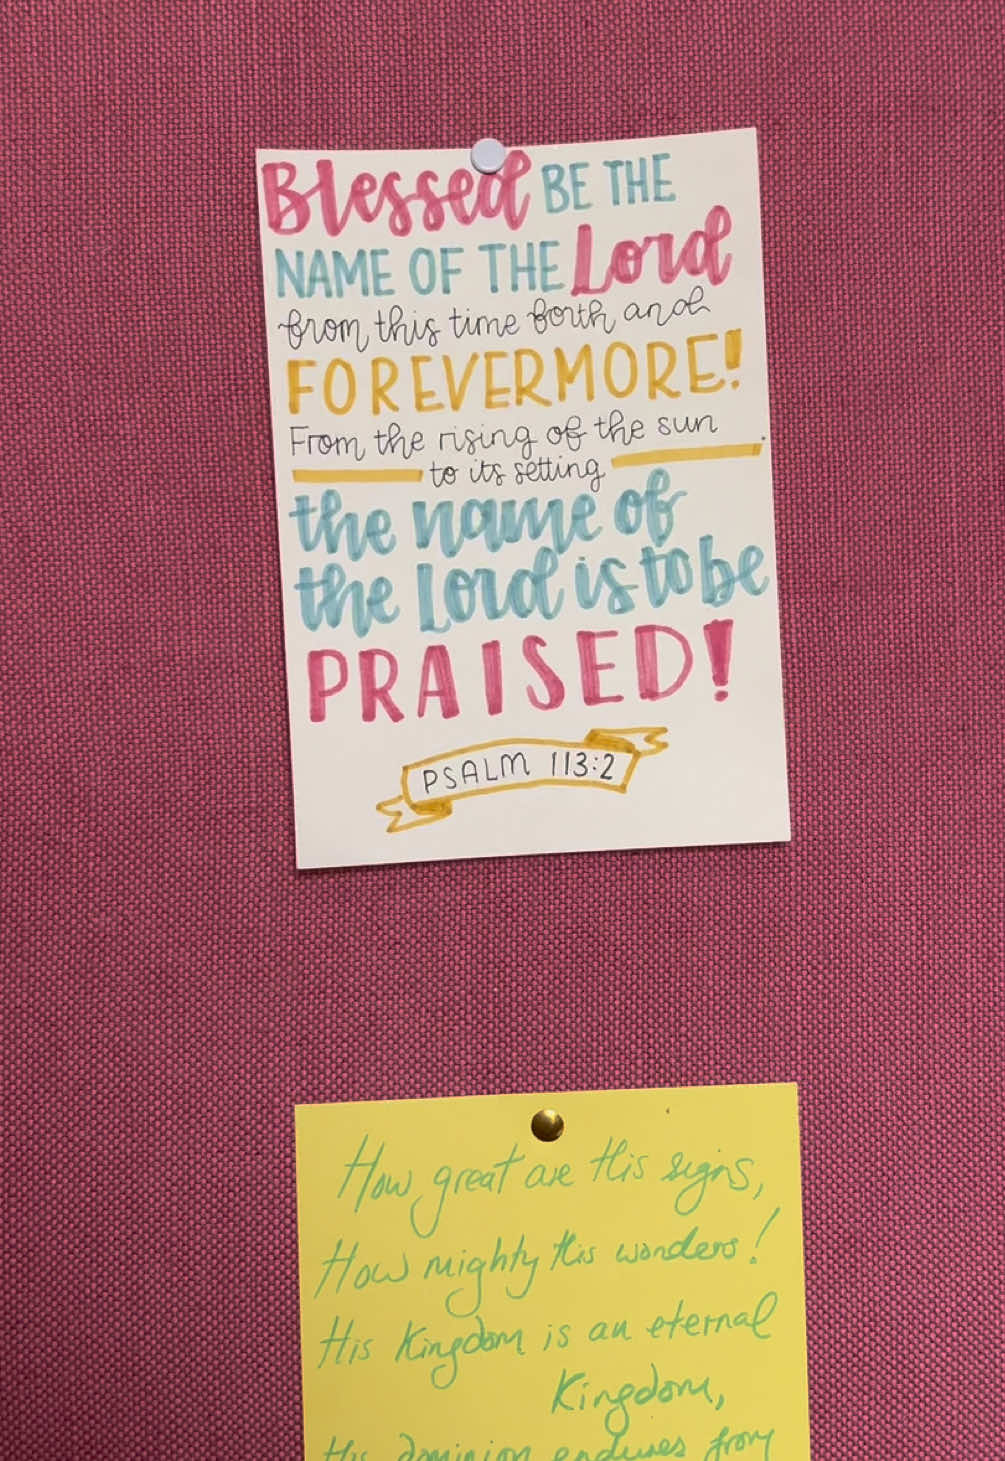 Blessed BE THE
NAME OF THE Lord
from this time forth and
FOREVERMORE!
From the rising of the sun
to its setting
the name of
the Lord is to be
PRAISED!
PSALM 113:2
How great are His signs,
How mighty His wonders!
His Kingdom is an eternal
Kingdom,
His dominion endures from